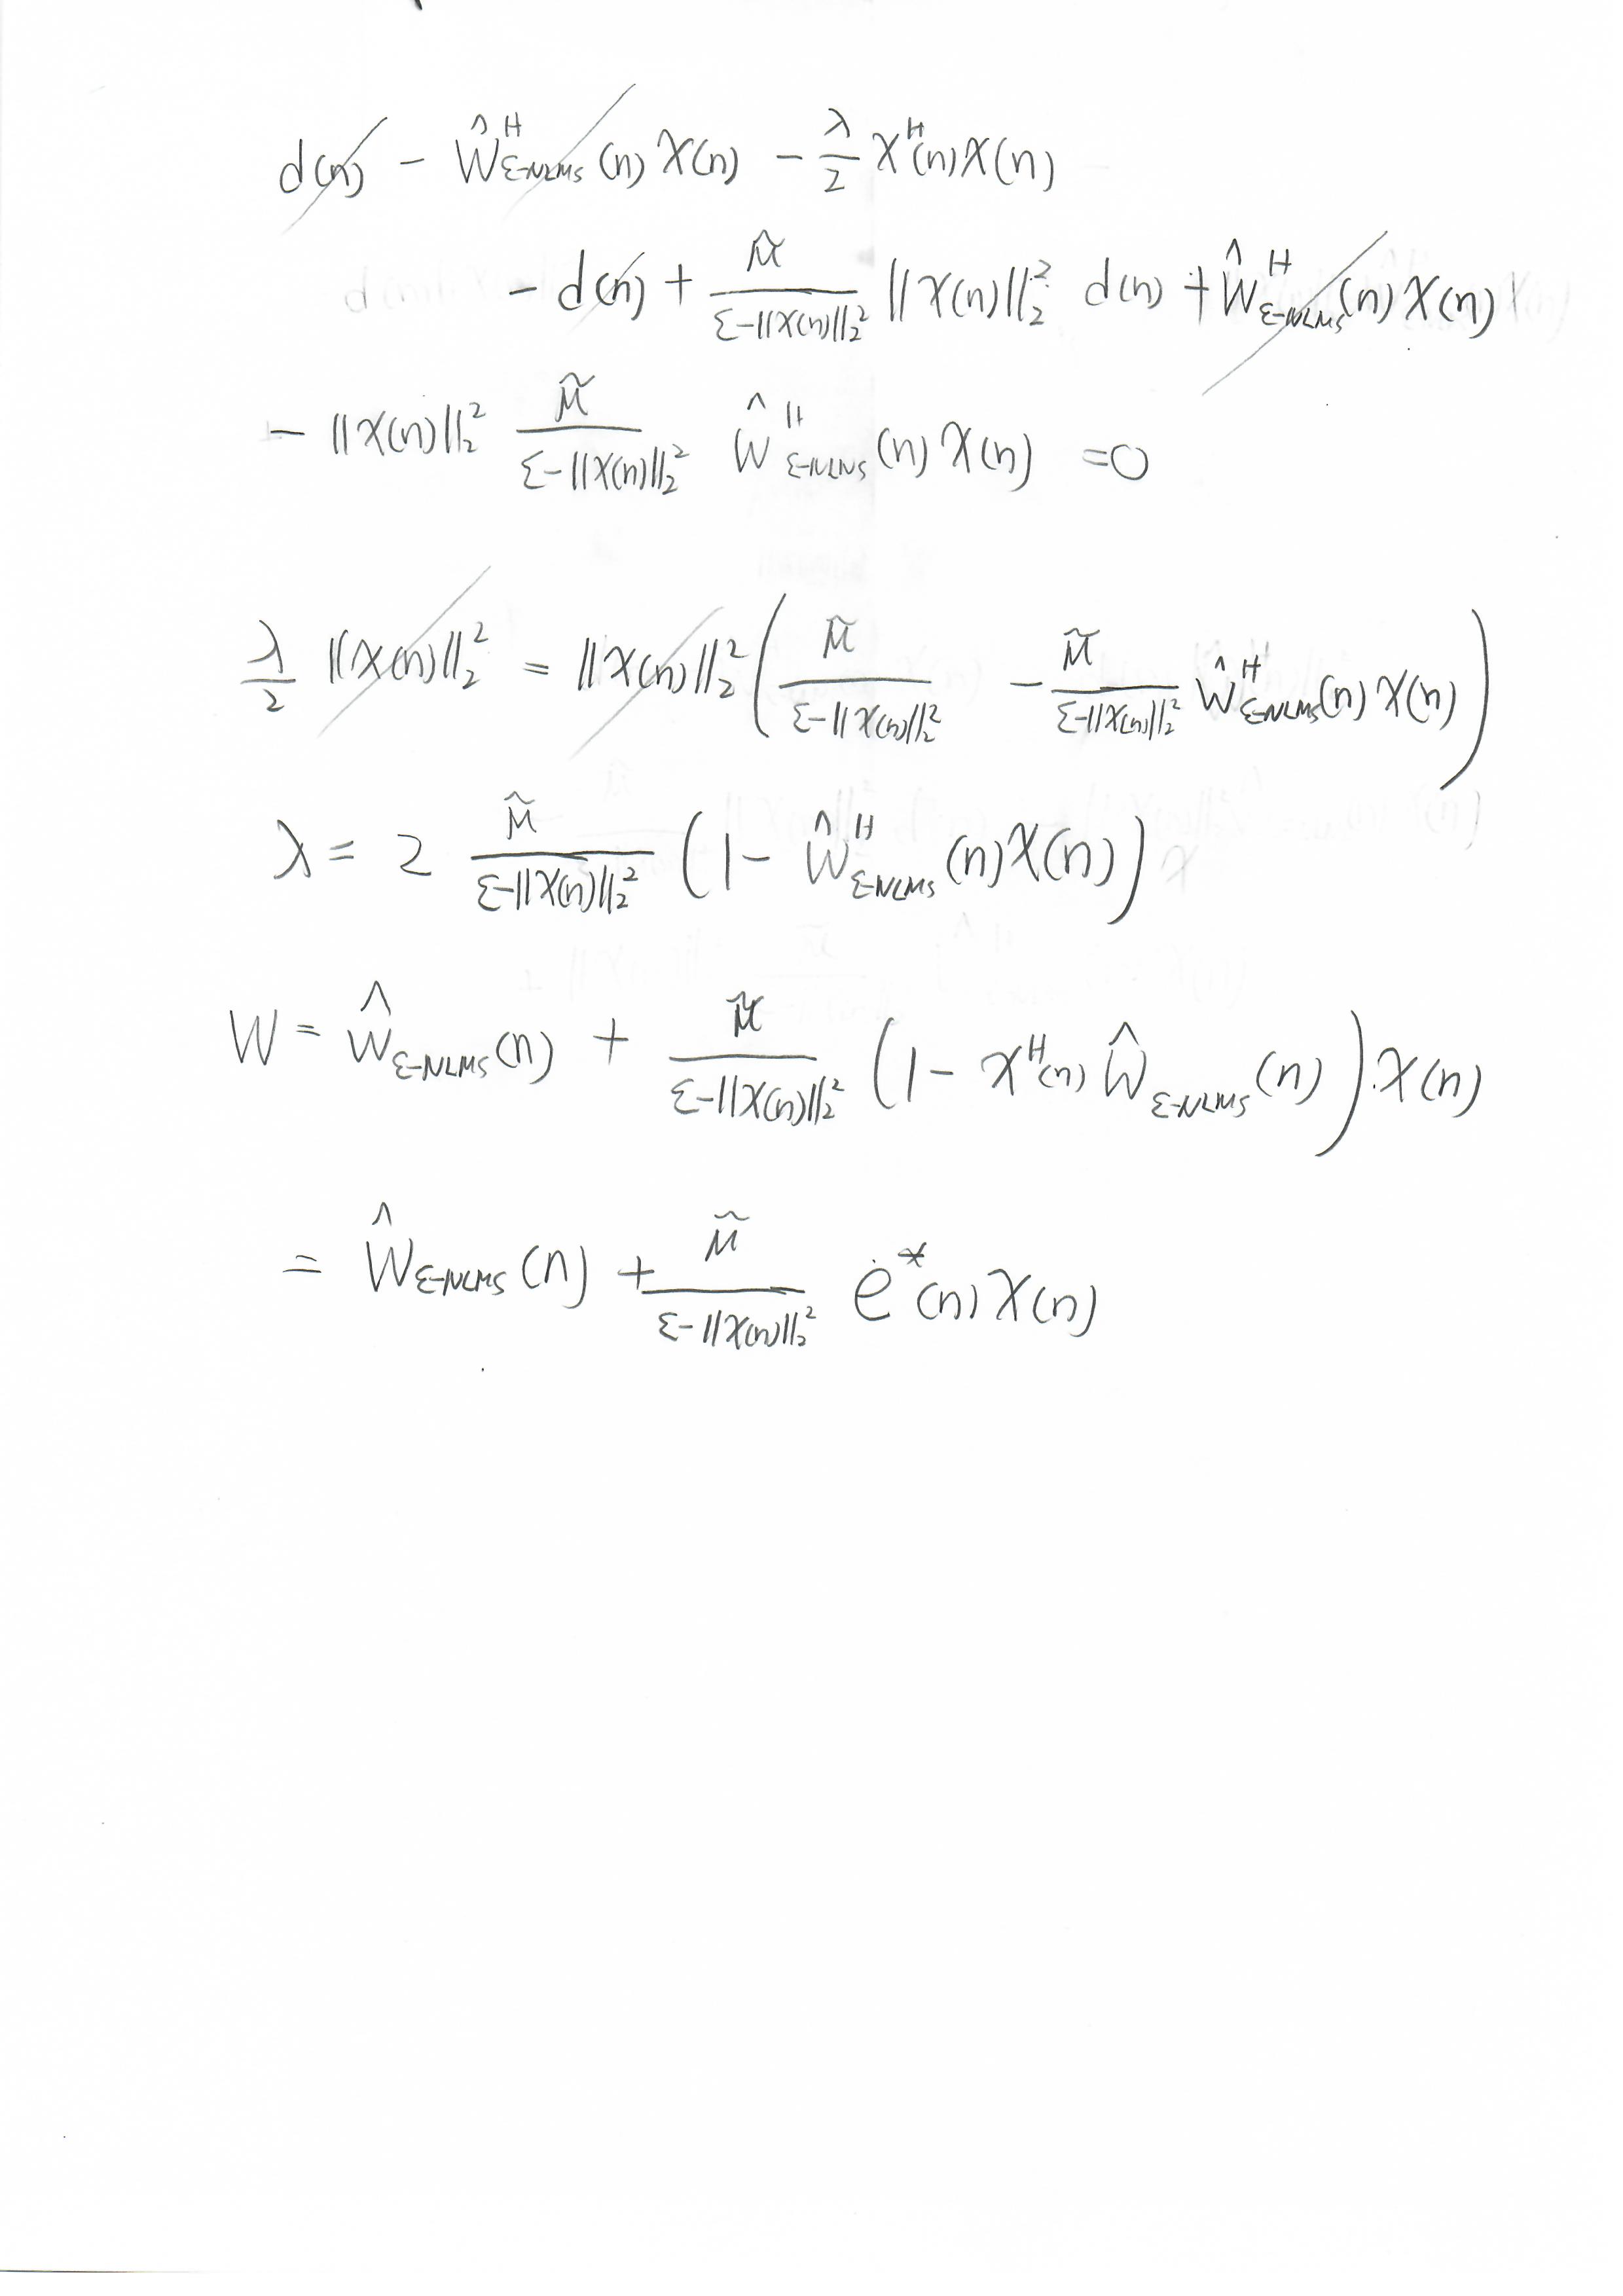 d(n) - Ŵ^H_{ε-NLMS}(n) X(n) - λ/2 X^H(n) X(n)
- d(n) + μ̃/(ε-||X(n)||_2^2) ||X(n)||_2^2 d(n) + Ŵ^H_{ε-NLMS}(n) X(n)
- ||X(n)||_2^2 μ̃/(ε-||X(n)||_2^2) Ŵ^H_{ε-NLMS}(n) X(n) =0
λ/2 ||X(n)||_2^2 = ||X(n)||_2^2 ( μ̃/(ε-||X(n)||_2^2) - μ̃/(ε-||X(n)||_2^2) Ŵ^H_{ε-NLMS}(n) X(n) )
λ = 2 μ̃/(ε-||X(n)||_2^2) (1- Ŵ^H_{ε-NLMS}(n) X(n))
W = Ŵ_{ε-NLMS}(n) + μ̃/(ε-||X(n)||_2^2) (1- X^H(n) Ŵ_{ε-NLMS}(n)) · X(n)
= Ŵ_{ε-NLMS}(n) + μ̃/(ε-||X(n)||_2^2) e^*(n) X(n)